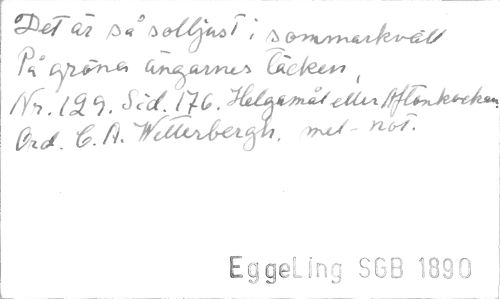 Det är så solljust i sommarkväll
På gröna ängarnes täcken,
Nr. 129. Sid. 176. Helgamål eller Aftonkvä
Ord. C. A. Wetterbergh. mel- not.
EggeLing SGB 1890